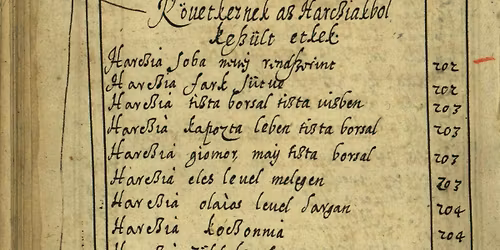 Következnek az Harcßiakbol
keßült etkek
Harcßia soba mint rendßerint 202
Harcßia fark sütue 202
Harcßia tißta borsal tißta uizben 203
Harcßia kapozta leben tißta borsal 203
Harcßia giomor, maÿ tißta borsal 203
Harcßia eles leuel melegen 203
Harcßia olaias leuel sargan 204
Harcßia kochonnia 204
Harcßia